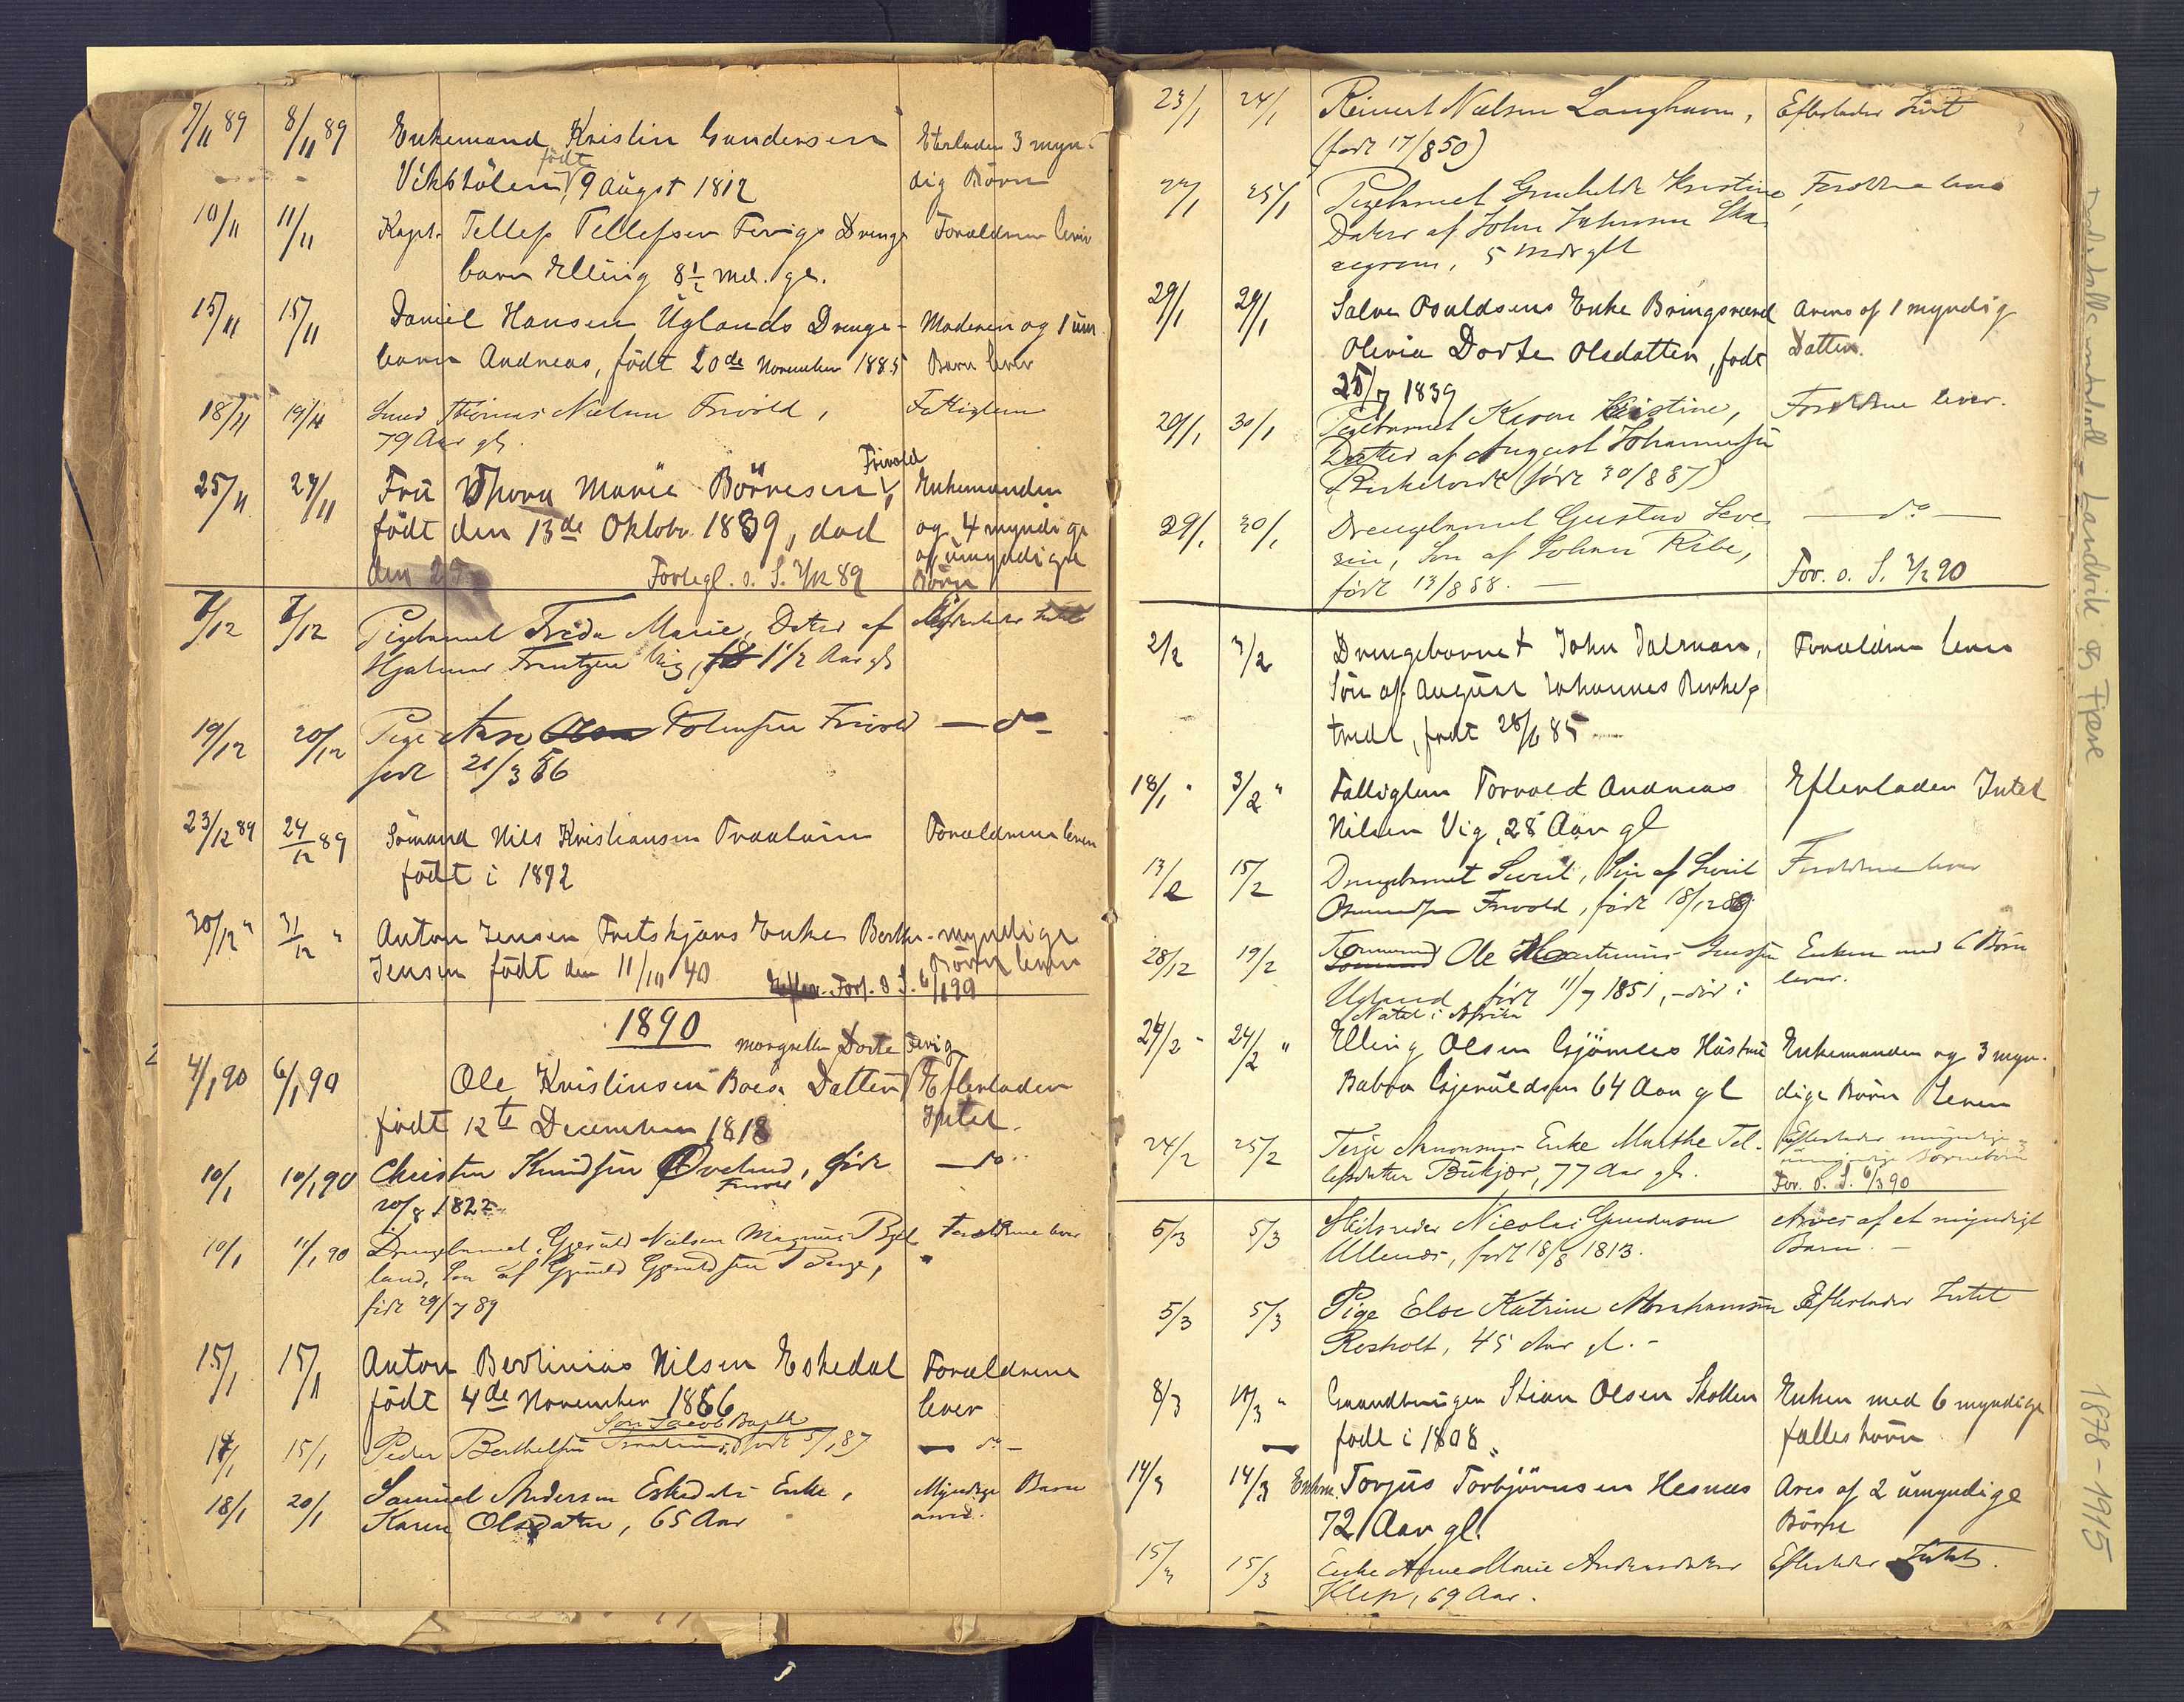 7/11 89 8/11 89 Enkemand Kristin Gundersen Eterlader 3 myn-
Vikstölen, födte 9 Augst 1812 dig Börn
10/11 11/11 Kapt. Tellef Tellefsen Fevigs Drenge Forældrene lever
barn Elling 8 1/2 Md. gl.
15/11 15/11 Daniel Hansen Uglands Drenge- Moderen og 1 um
barn Andreas, födt 20de November 1885 Barn lever
18/11 19/11 Smed Thomas Nielsen Frivold, Fattiglem
79 Aar gl.
Frivold
25/11 27/11 Fru Thora Marie Börresen, Enkemanden
födt den 13de Oktobr 1839, död og 4 myndige
den 25 og umyndige
Forlegl. o. S. 2/12 89 Börn
7/12 7/12 Pigebarnet Frida Marie, Datter af Efterlader Intet
Hjalmar Frantzen Vig, 1 1/2 Aar gl.
19/12 20/12 Pige Anne Tolmsen Frivold — do —
født 21/3 56
23/12 89 24/12 89 Sömand Nils Kristiansen Forældrene lever
födt i 1872
30/12 " 31/12 " Anton Jensen Enke Berthe myndige
Jensen födt den 11/10 40 Börn lever
Forl. o S. 6/1 90
1890
Margrethe Dorte Fevig
4/1 90 6/1 90 Ole Kristinsen Boes. Datter Efterlader
födt 12te December 1818 Intet.
10/1 10/1 90 Christen Knudsen født — do —
Frivold
20/8 1822
10/1 11/1 90 Drengebarnet, Gjeruld Nielsen Magnus Forældrene lever
land, Søn af Gjeruld Gjeruldsen Berge,
født 29/7 89
15/1 15/1 Anton Bertinius Nilsen Eskedal Forældrene
födt 4de November 1886 lever
Søn Jacob
14/1 15/1 Peder Berthelsen født 5/1 87 — do —
18/1 20/1 Samuel Andersen Eskedals Enke, Myndige Børn
Karen Olsdatter, 65 Aar
23/1 24/1 Reinert Nielsen Langhavn, Efterlader Intet
(født 17/8 50)
25/1 Pigebarnet Gunhilde Kristine, Forældrene lever
Datter af John Johnsen
5 Mdr glt
29/1 29/1 Salve Osuldsens Enke Bringsværd Arves af 1 myndig
Olevia Dorte Olsdatter, födt Datter.
25/7 1839
29/1 30/1 Pigebarnet Karen Kristine, Forældrene lever.
Datter af August Johannesen
(født 30/8 87)
29/1 30/1 Drengebarnet Gustav Seve- — do —
rin, Søn af Johan Ribe,
født 13/8 88. — For. o. S. 3/2 90
2/2 3/2 Drengebarnet John Forældrene lever
Sön af August Johannes Berkelf
tvedt, födt 28/6 85
18/1 " 3/2 " Fattiglem Torvald Andreas Efterlader Intet
Nilsen Vig, 28 Aar gl
13/2 15/2 Drengebarnet Sivert, Søn af Sivert Forældrene lever
Frivold, født 18/12 89
28/12 19/2 Tømmermd Ole Martinius Enken med 6 Børn
Ugland, født 11/7 1851, – død i lever.
Natal i Afrika
24/2 " 24/2 " Elling Olsen Hustru Enkemanden og 3 myn-
Babra Gjeruldsen 64 Aar gl dige Börn lever
24/2 25/2 Terje Enke Marthe Tel- Efterlader myndige og
lefsdatter Bukjær, 77 Aar gl. umyndige Børnebørn
For. o. S. 6/3 90
5/3 5/3 Skibsreder Nicolai Gundersen Arves af et myndigt
Ullenæs, født 18/8 1813. Barn. –
5/3 5/3 Pige Else Katrine Abrahamsen Efterlader Intet
Rosholt, 45 Aar gl. –
8/3 10/3 " Gaardbruger Stian Olsen Skollen Enken med 6 myndige
födt i 1808. fælles börn
14/3 14/3 Enkem. Torjus Torbjörnsen Hesnæs Arves af 2 umyndige
72 Aar gl. Börn
15/3 15/3 Enke Anne Marie Andersdatter Efterlader Intet.
Klep, 69 Aar.
Landvik og Fjære
1878-1915